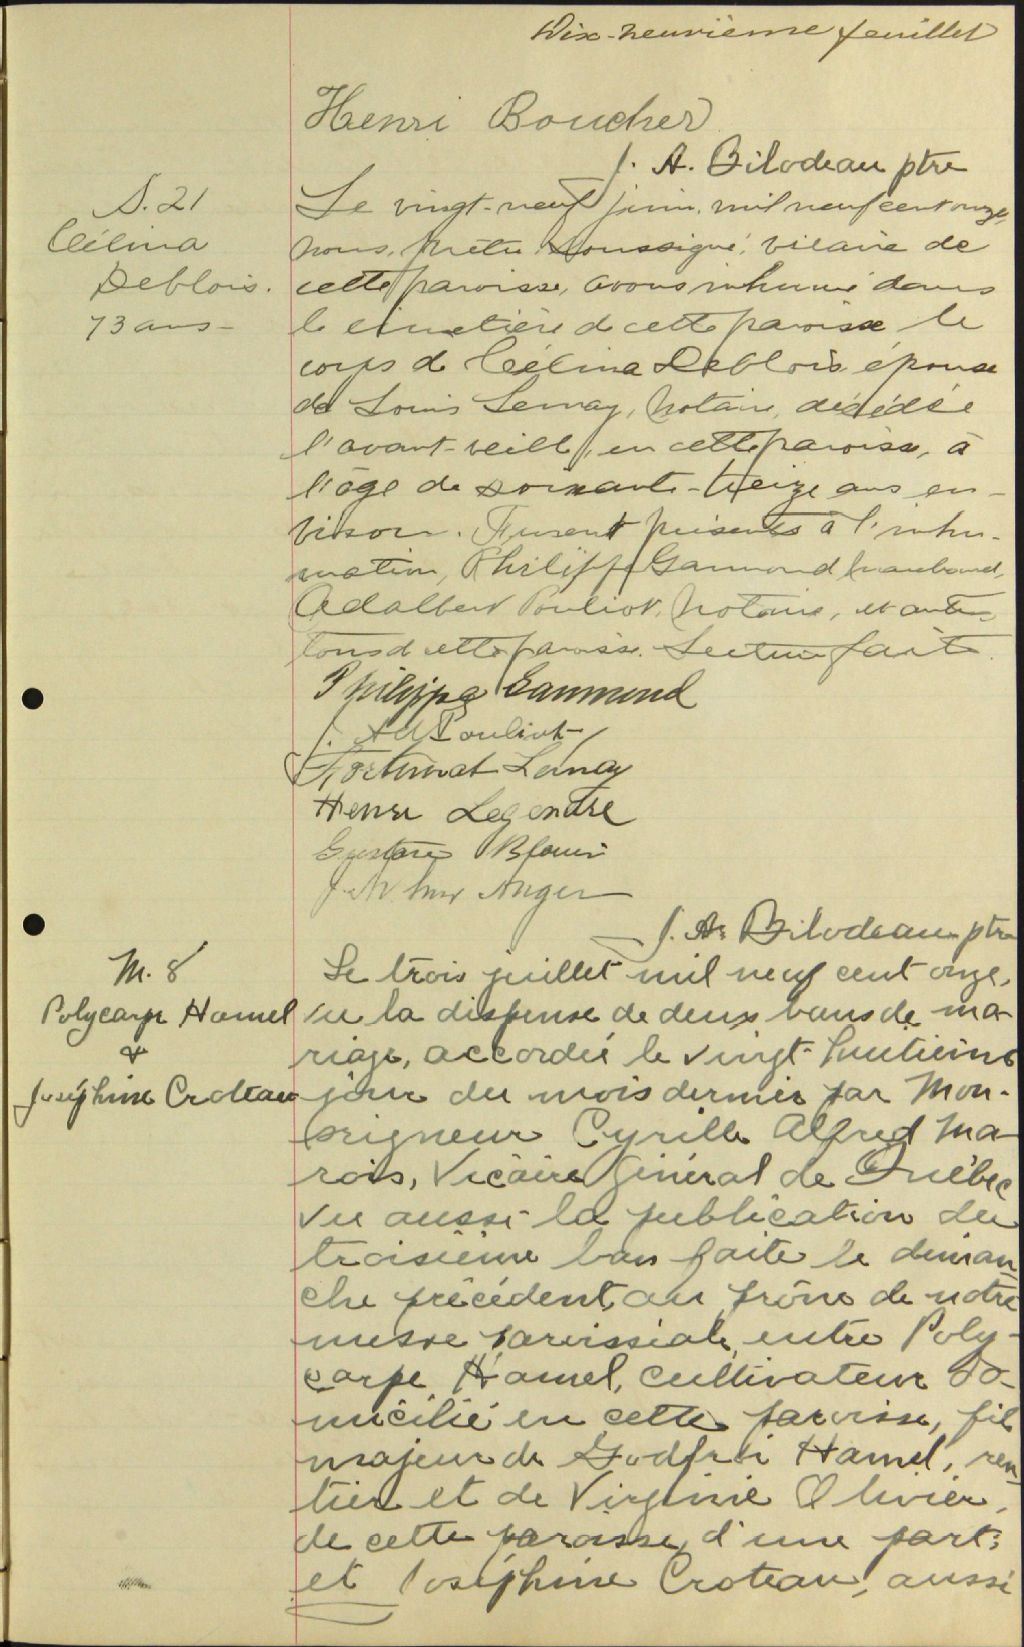 Dix-neuvième feuillet
Henri Boucher
J. A. Bilodeau ptre
S. 21
Célina
Deblois.
73 ans-
Le vingt-neuf juin, mil neuf cent onze,
nous, prêtre soussigné, vicaire de
cette paroisse, avons inhumé dans
le cimetière de cette paroisse le
corps de Célina Deblois épouse
de Louis Lemay, notaire, décédée
l'avant-veille, en cette paroisse, à
l'âge de soixante-treize ans en-
viron. Furent présents à l'inhu-
mation, Philippe Gaumond, marchand,
Adalbert Pouliot, notaire, et autres
tous de cette paroisse. Lecture faite.
Philippe Gaumond
J. Ad Pouliot
Fortunat Lemay
Henri Legendre
Gustave Blouin
J. Arthur Anger
J. A. Bilodeau ptre
M. 8
Polycarpe Hamel
&
Joséphine Croteau
Le trois juillet mil neuf cent onze,
vu la dispense de deux bans de ma-
riage, accordée le vingt-huitième
jour du mois dernier par Mon-
seigneur Cyrille Alfred Ma-
rois, Vicaire Général de Québec
vu aussi la publication du
troisième ban faite le diman-
che précédent, au prône de notre
messe paroissiale, entre Poly-
carpe Hamel, cultivateur do-
micilié en cette paroisse, fils
majeur de Godfroi Hamel, ren-
tier et de Virginie Olivier,
de cette paroisse, d'une part;
et Joséphine Croteau, aussi